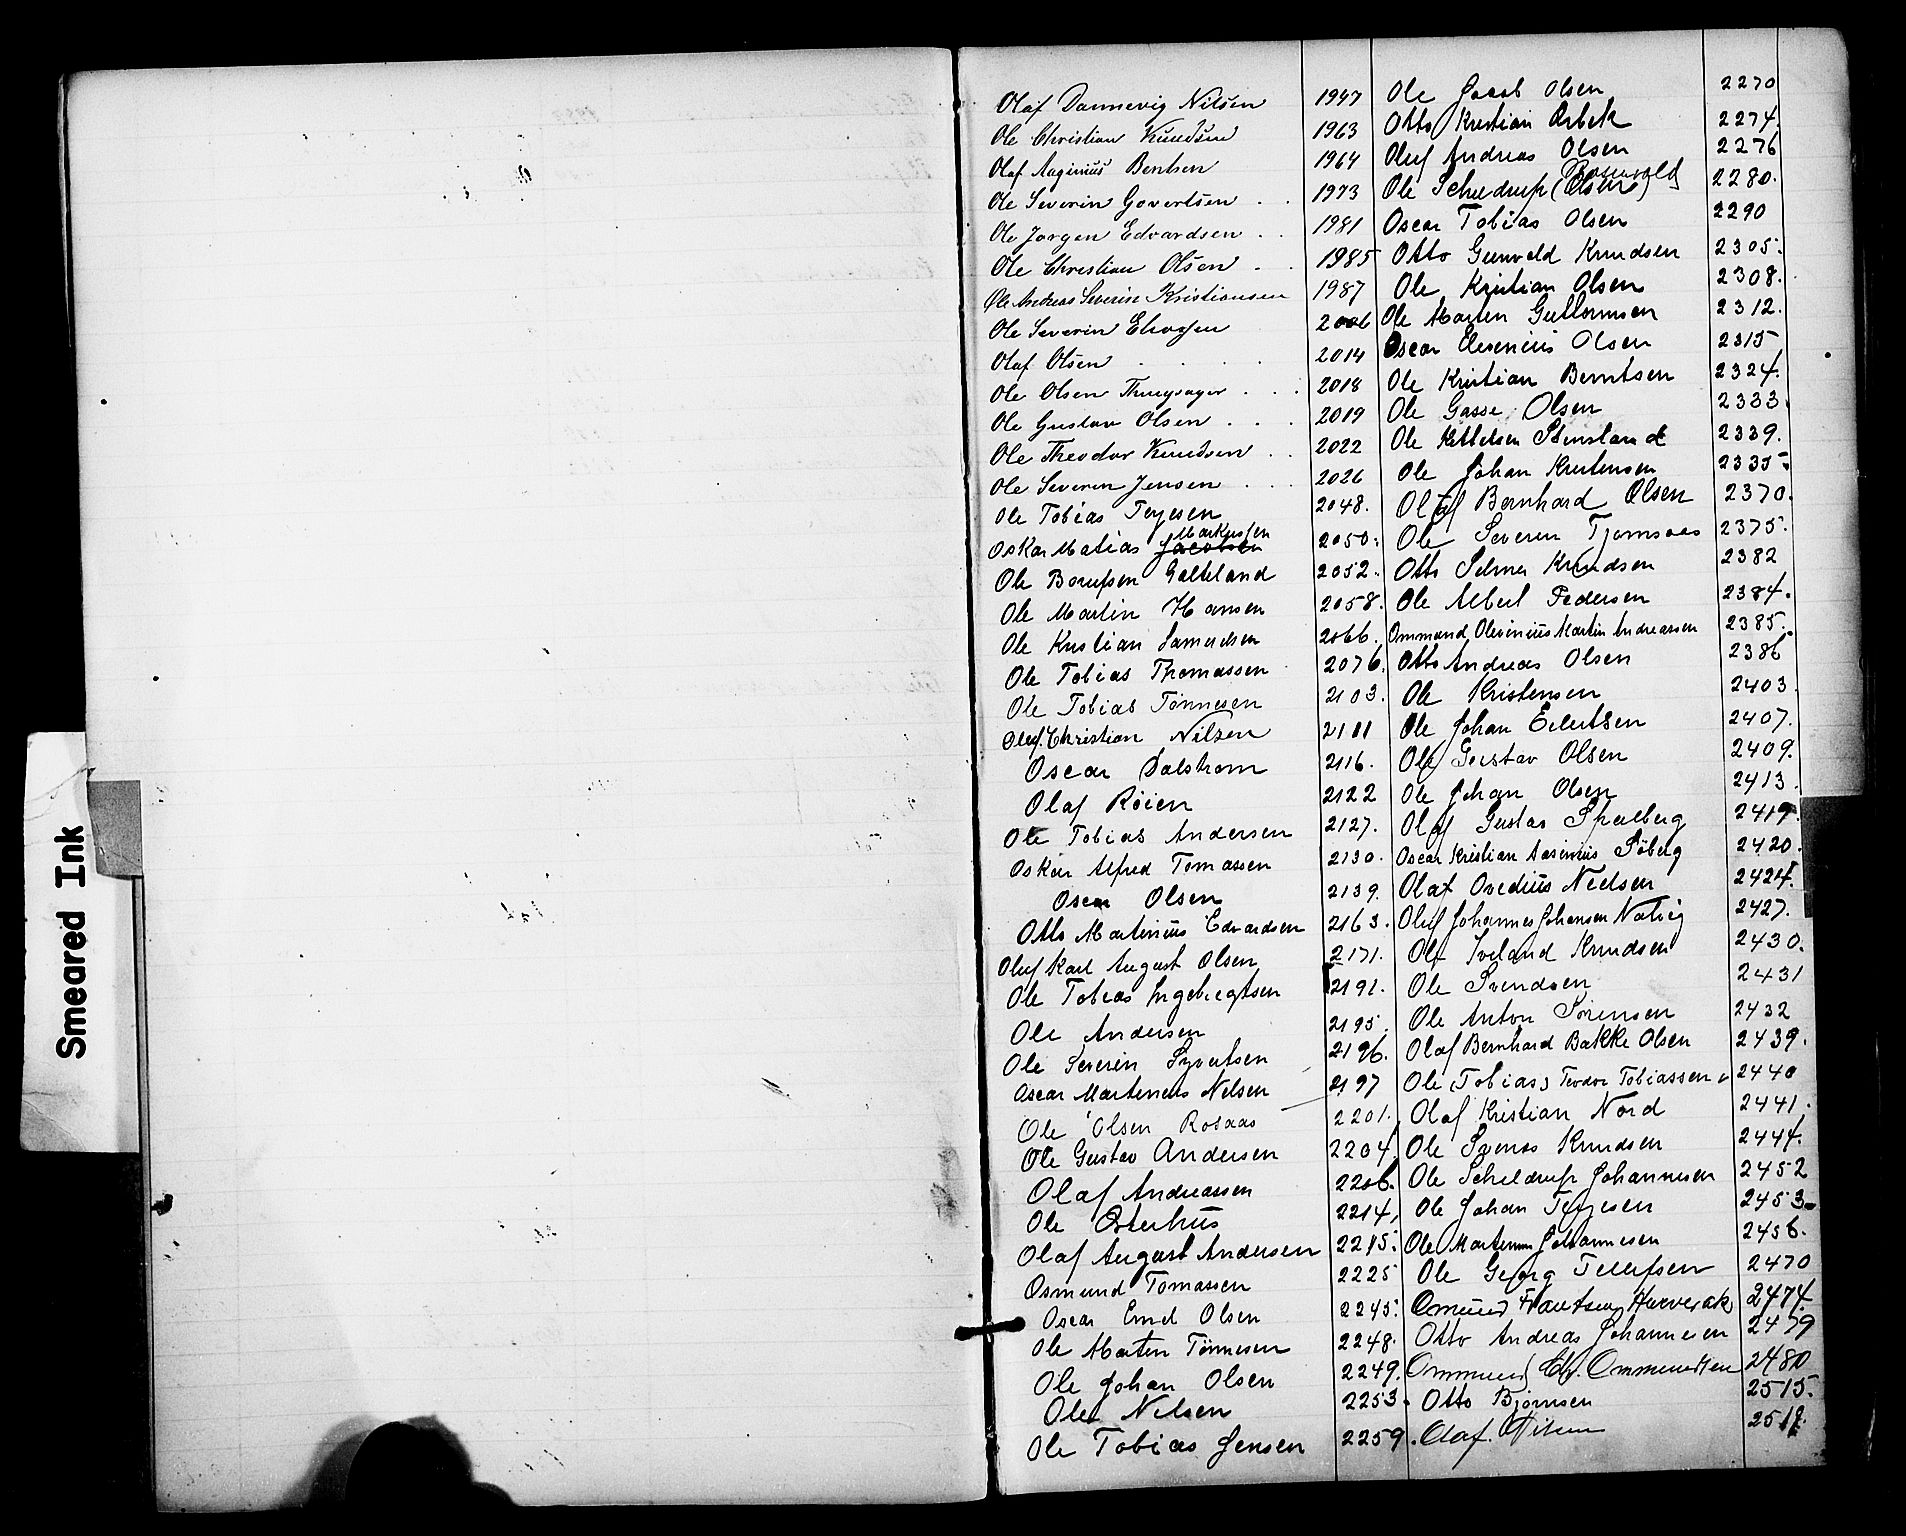 Smeared Ink
Olaf Dannevig Nilsen 1947
Ole Christian Knudsen 1963
Olaf Bentsen 1964
Ole Severin Govertsen . . 1973
Ole Jørgen Edvardsen . . 1981
Ole Christian Olsen . . 1985
Ole Andreas Severin Kristiansen 1987
Ole Severin 2006
Olaf Olsen . . . 2014
Ole Olsen . . . 2018
Ole Gustav Olsen . . . 2019
Ole Theodor Knudsen . . 2022
Ole Severin Jensen . . . 2026
Ole Tobias Terjesen 2048.
Markussen
Oskar Matias Jacobsen 2050.
Ole Galteland 2052.
Ole Martin Hansen 2058.
Ole Kristian Samuelsen 2066.
Ole Tobias Thomassen 2076.
Ole Tobias Tønnesen 2103.
Oluf Christian Nilsen 2111
Oscar Dalstrøm 2116.
Olaf Röien 2122
Ole Tobias Andersen 2127.
Oskar Alfred Tomassen 2130.
Oscar Olsen 2139.
Otto Martinius Edvardsen 2163.
Oluf Karl August Olsen 2171.
Ole Tobias Ingebregtsen 2191.
Ole Andersen 2195.
Ole Severin Syvertsen 2196.
Oscar Martinius Nilsen 2197
Ole Olsen Rosaas 2201.
Ole Gustav Andersen 2204.
Olaf Andreassen 2206.
Ole Osterhus 2214.
Olaf August Andersen 2215.
Osmund Tomassen 2225
Oscar Emil Olsen 2245.
Ole Martin Tønnesen 2248.
Ole Johan Olsen 2249.
Ole Nilsen 2253.
Ole Tobias Jensen 2259.
Ole Jacob Olsen 2270
Otto Kristian Orbek 2274.
Oluf Andreas Olsen 2276
Rosenvold
Ole Scheldrup (Olsen) 2280.
Oscar Tobias Olsen 2290
Otto Gunvald Knudsen 2305.
Ole Kristian Olsen 2308.
Ole Martin Guttormsen 2312.
Oscar Elesenius Olsen 2315
Ole Kristian Berntsen 2324.
Ole Gasse Olsen 2333.
Ole Kittelsen Stensland 2339.
Ole Johan Kristensen 2335.
Olaf Bernhard Olsen 2370.
Ole Severin Tjomsaas 2375.
Otto Selmer Knudsen 2382
Ole Albert Pedersen 2384.
Ommund Olevinius Martin Andreassen 2385.
Otto Andreas Olsen 2386
Ole Kristensen 2403.
Ole Johan Eilertsen 2407.
Ole Gustav Olsen 2409.
Ole Johan Olsen 2413.
Olaf Gustav Spilberg 2419.
Oscar Kristian Søberg 2420.
Olaf Ovedius Nielsen 2424.
Oluf Johannes Johansen Natvig 2427.
Ole Iveland Knudsen 2430.
Ole Svendsen 2431
Ole Anton Sørensen 2432
Olaf Bernhard Bakke Olsen 2439.
Ole (Tobias) Teodor Tobiassen 2440
Olaf Kristian Nord 2441.
Ole Knudsen 2444.
Ole Scheldrup Johannesen 2452
Ole Johan Terjesen 2453.
Ole Martinius Johannesen 2456.
Ole Georg Tellefsen 2470
Omund Frantsen 2474.
Otto Andreas Johannesen 2479
Ommund Chr. Ommundsen 2480
Otto Bjørnsen 2515.
Olaf Nilsen 2518.